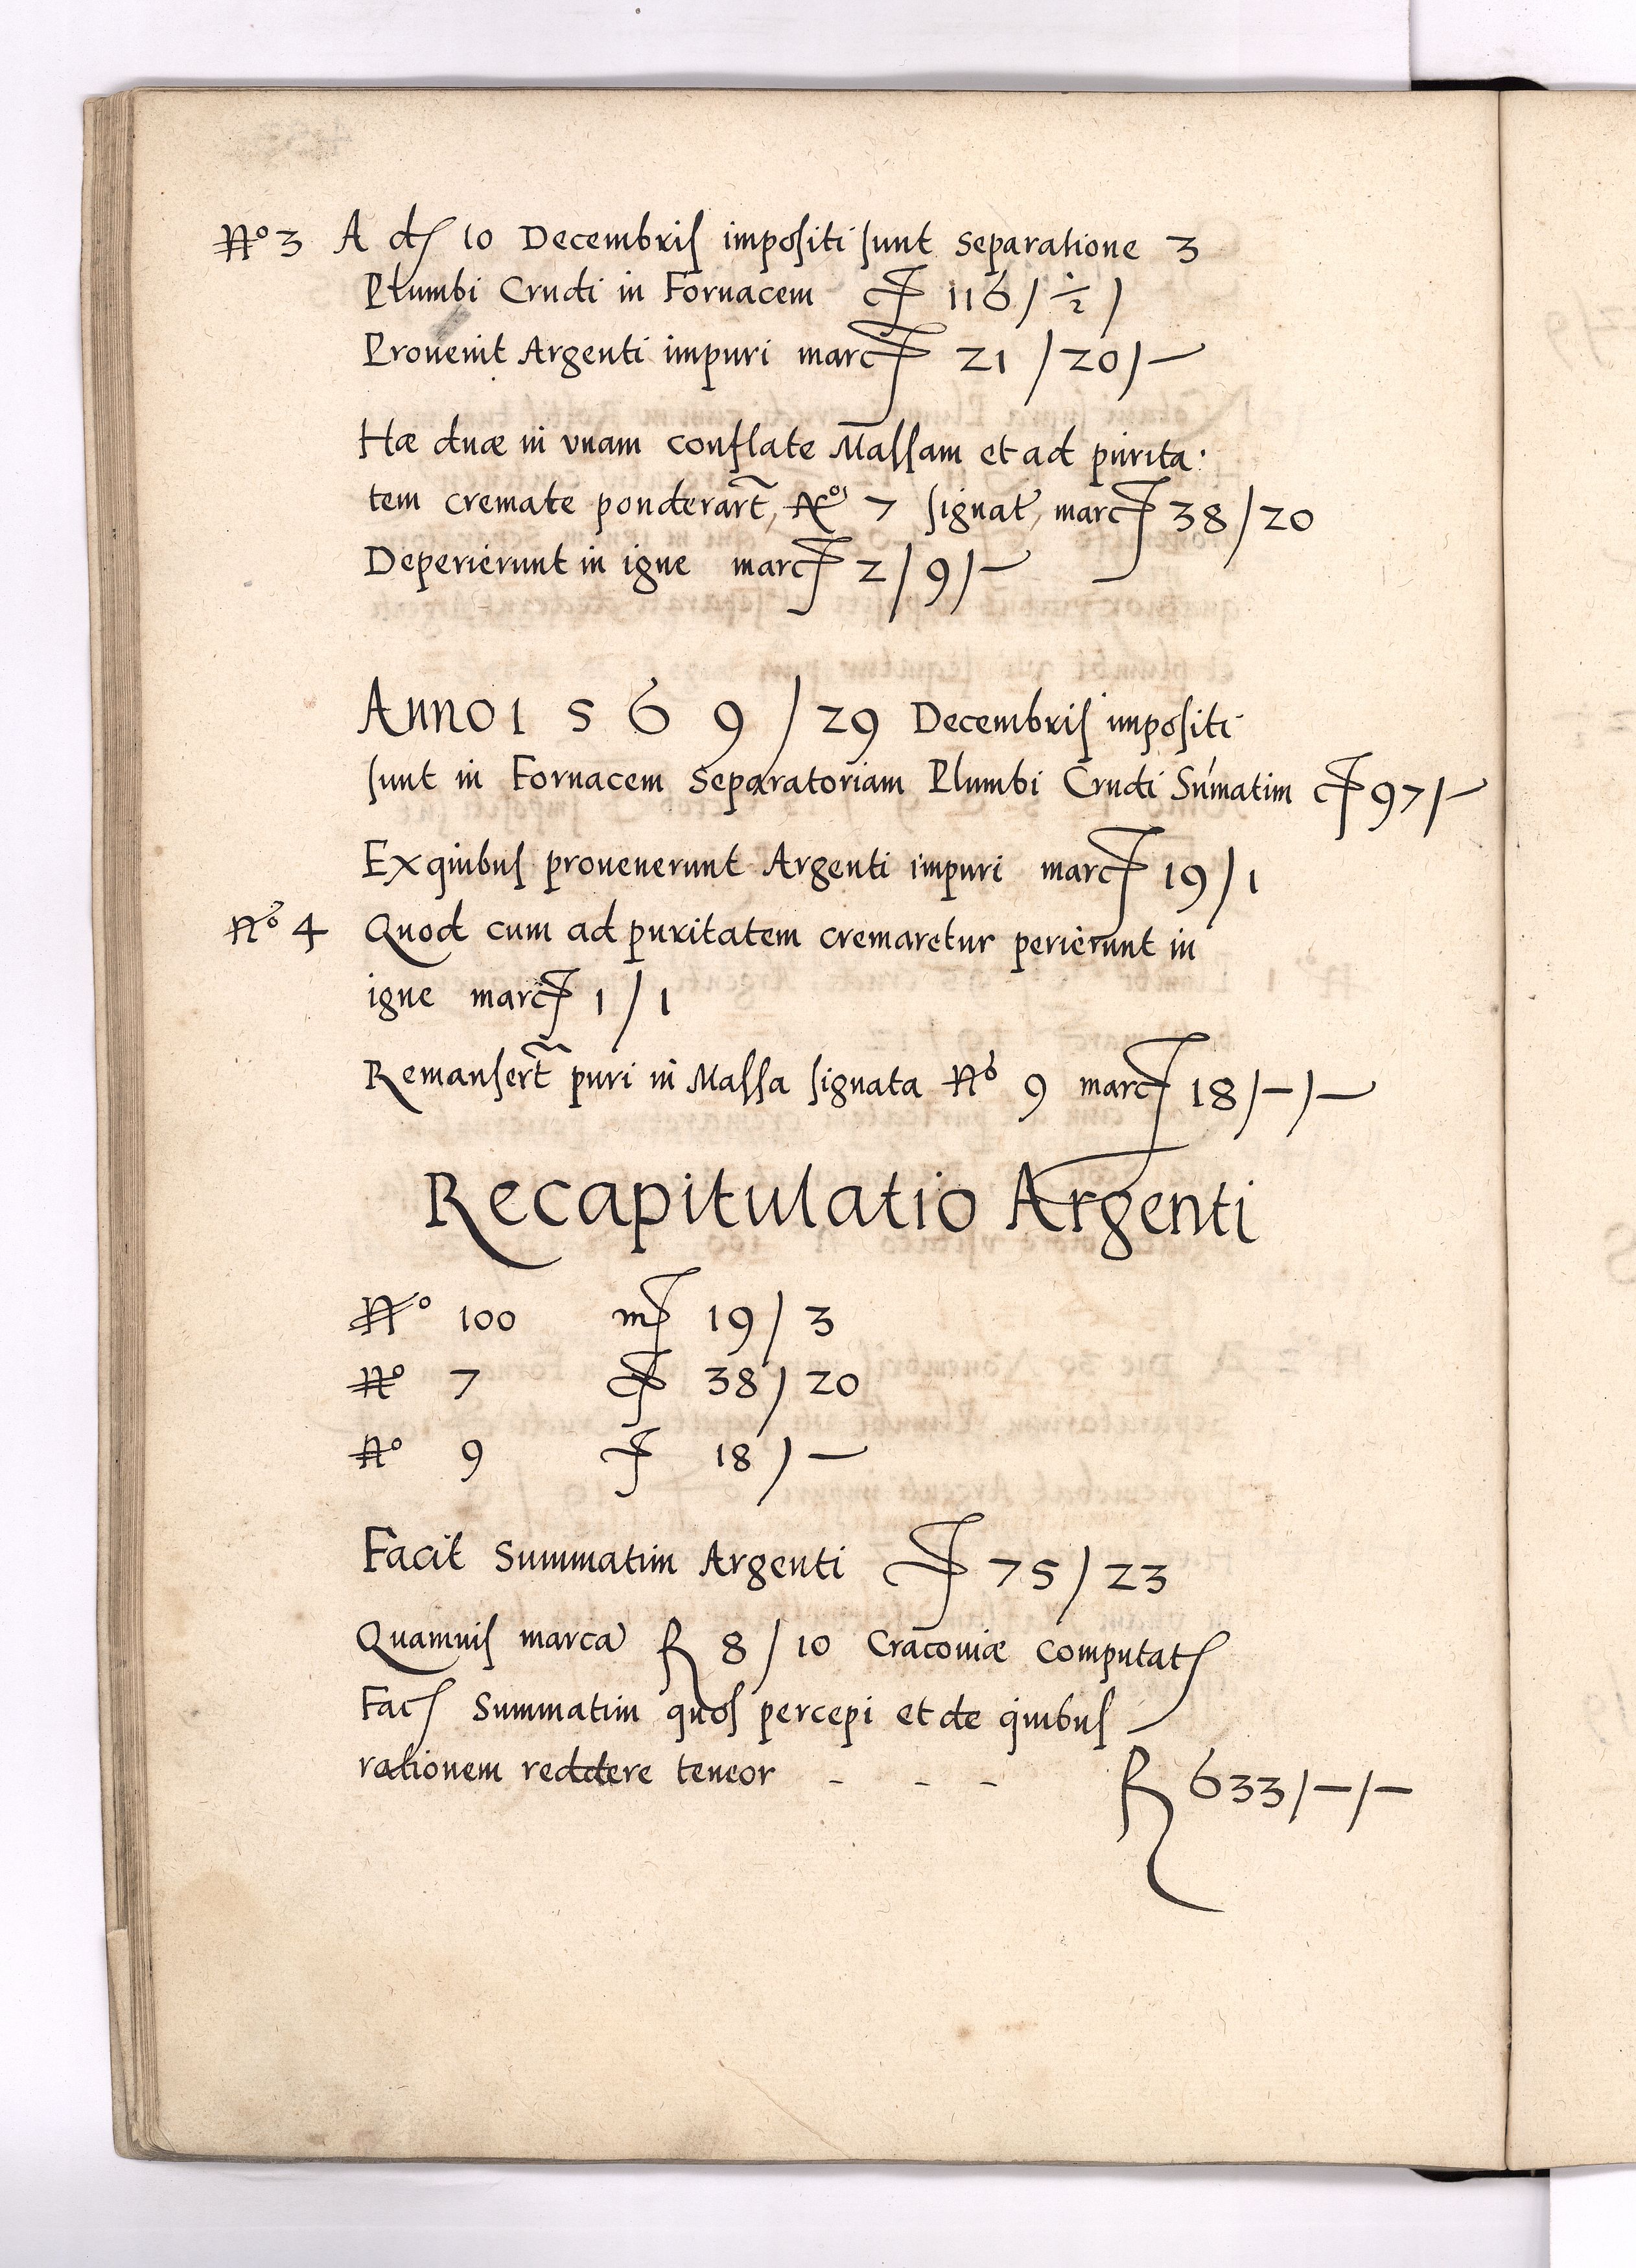 No 3 A ds 10 Decembris impositi sunt separatione 3
Plumbi Crudi in Fornacem c 116 / ½ /
Prouenit Argenti impuri marc 21 / 20 / —
Hæ duæ in vnam conflate Massam et ad purita:
tem cremate ponderart̃, No 7 signat, marc 38 / 20
Deperierunt in igne marc 2 / 9 / —
Anno 1 5 6 9 / 29 Decembris impositi
sunt in Fornacem separatoriam Plumbi Crudi Sum̃atim c 97 / —
Ex quibus prouenerunt Argenti impuri marc 19 / 1
No 4 Quod cum ad puritatem cremaretur perierunt in
igne marc 1 / 1
Remansert̃ puri in Massa signata No 9 marc 18 / — / —
Recapitulatio Argenti
No 100 m 19 / 3
No 7 38 / 20
No 9 18 / —
Facit Summatim Argenti 75 / 23
Quamuis marca R 8 / 10 Cracouiæ computat
Fac Summatim quos percepi et de quibus
rationem reddere teneor - - - R 633 / — / —